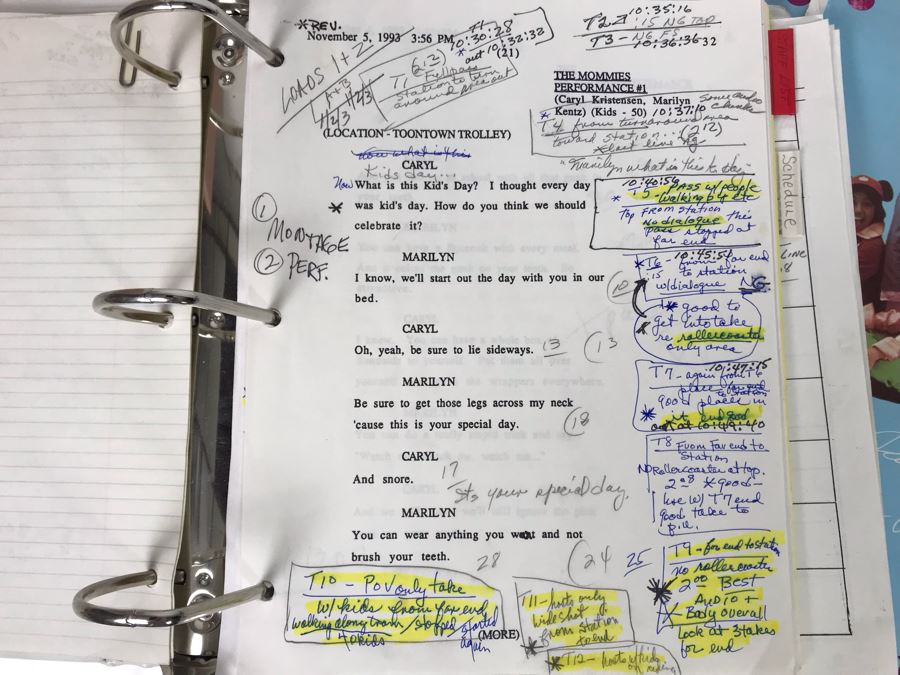 *REV.
November 5, 1993 3:56 PM
T1
10:30:28
10:32:32
out (21)
10:35:16
T2 - :15 NG TOP
T3 - NG FS
10:36:36
LOADS 1+2
A+B
T1 Fullpass
station to turn
around area out
THE MOMMIES
PERFORMANCE #1
(Caryl Kristensen, Marilyn
Kentz) (Kids - 50) 10:37:10
some audio
T4 from turnaround area
toward station... (2 12)
last line NG
(LOCATION - TOONTOWN TROLLEY)
now what is this
CARYL
Kids day...
"Marilyn what is this today-
Now What is this Kid's Day? I thought every day
* was kid's day. How do you think we should
celebrate it?
1
MONTAGE
2 PERF.
10:40:56
* T5 - PASS w/people
walking by etc
Top FROM station
No dialogue this
pass stopped at
far end
MARILYN
I know, we'll start out the day with you in our
bed.
10
*T6 - 10:45:54
from far end
to station
w/dialogue NG
* good to
get into take
re rollercoaster
only area
CARYL
Oh, yeah, be sure to lie sideways. 13
13
T7 - again from T6
place far end
to station
10:47:15
good places in
* it end good
out at 10:49:40
MARILYN
Be sure to get those legs across my neck
'cause this is your special day.
18
T8
From Far end to
Station
NO Rollercoaster at top.
2 08 * good -
use w/ T7 end
good take to
p.u.
CARYL
And snore. 17
It's your special day.
MARILYN
You can wear anything you want and not
brush your teeth.
28
24
25
T9 - far end to station
no rollercoaster
2 00 Best
AUDIO +
Body overall
Look at 3 takes
for end
T10 POV only take
w/kids from far end
walking along tram / stopped started
again
40 kids
(MORE)
T11 - hosts only
wide shot
from station
to end
* T12 - hosts w/kids
Schedule